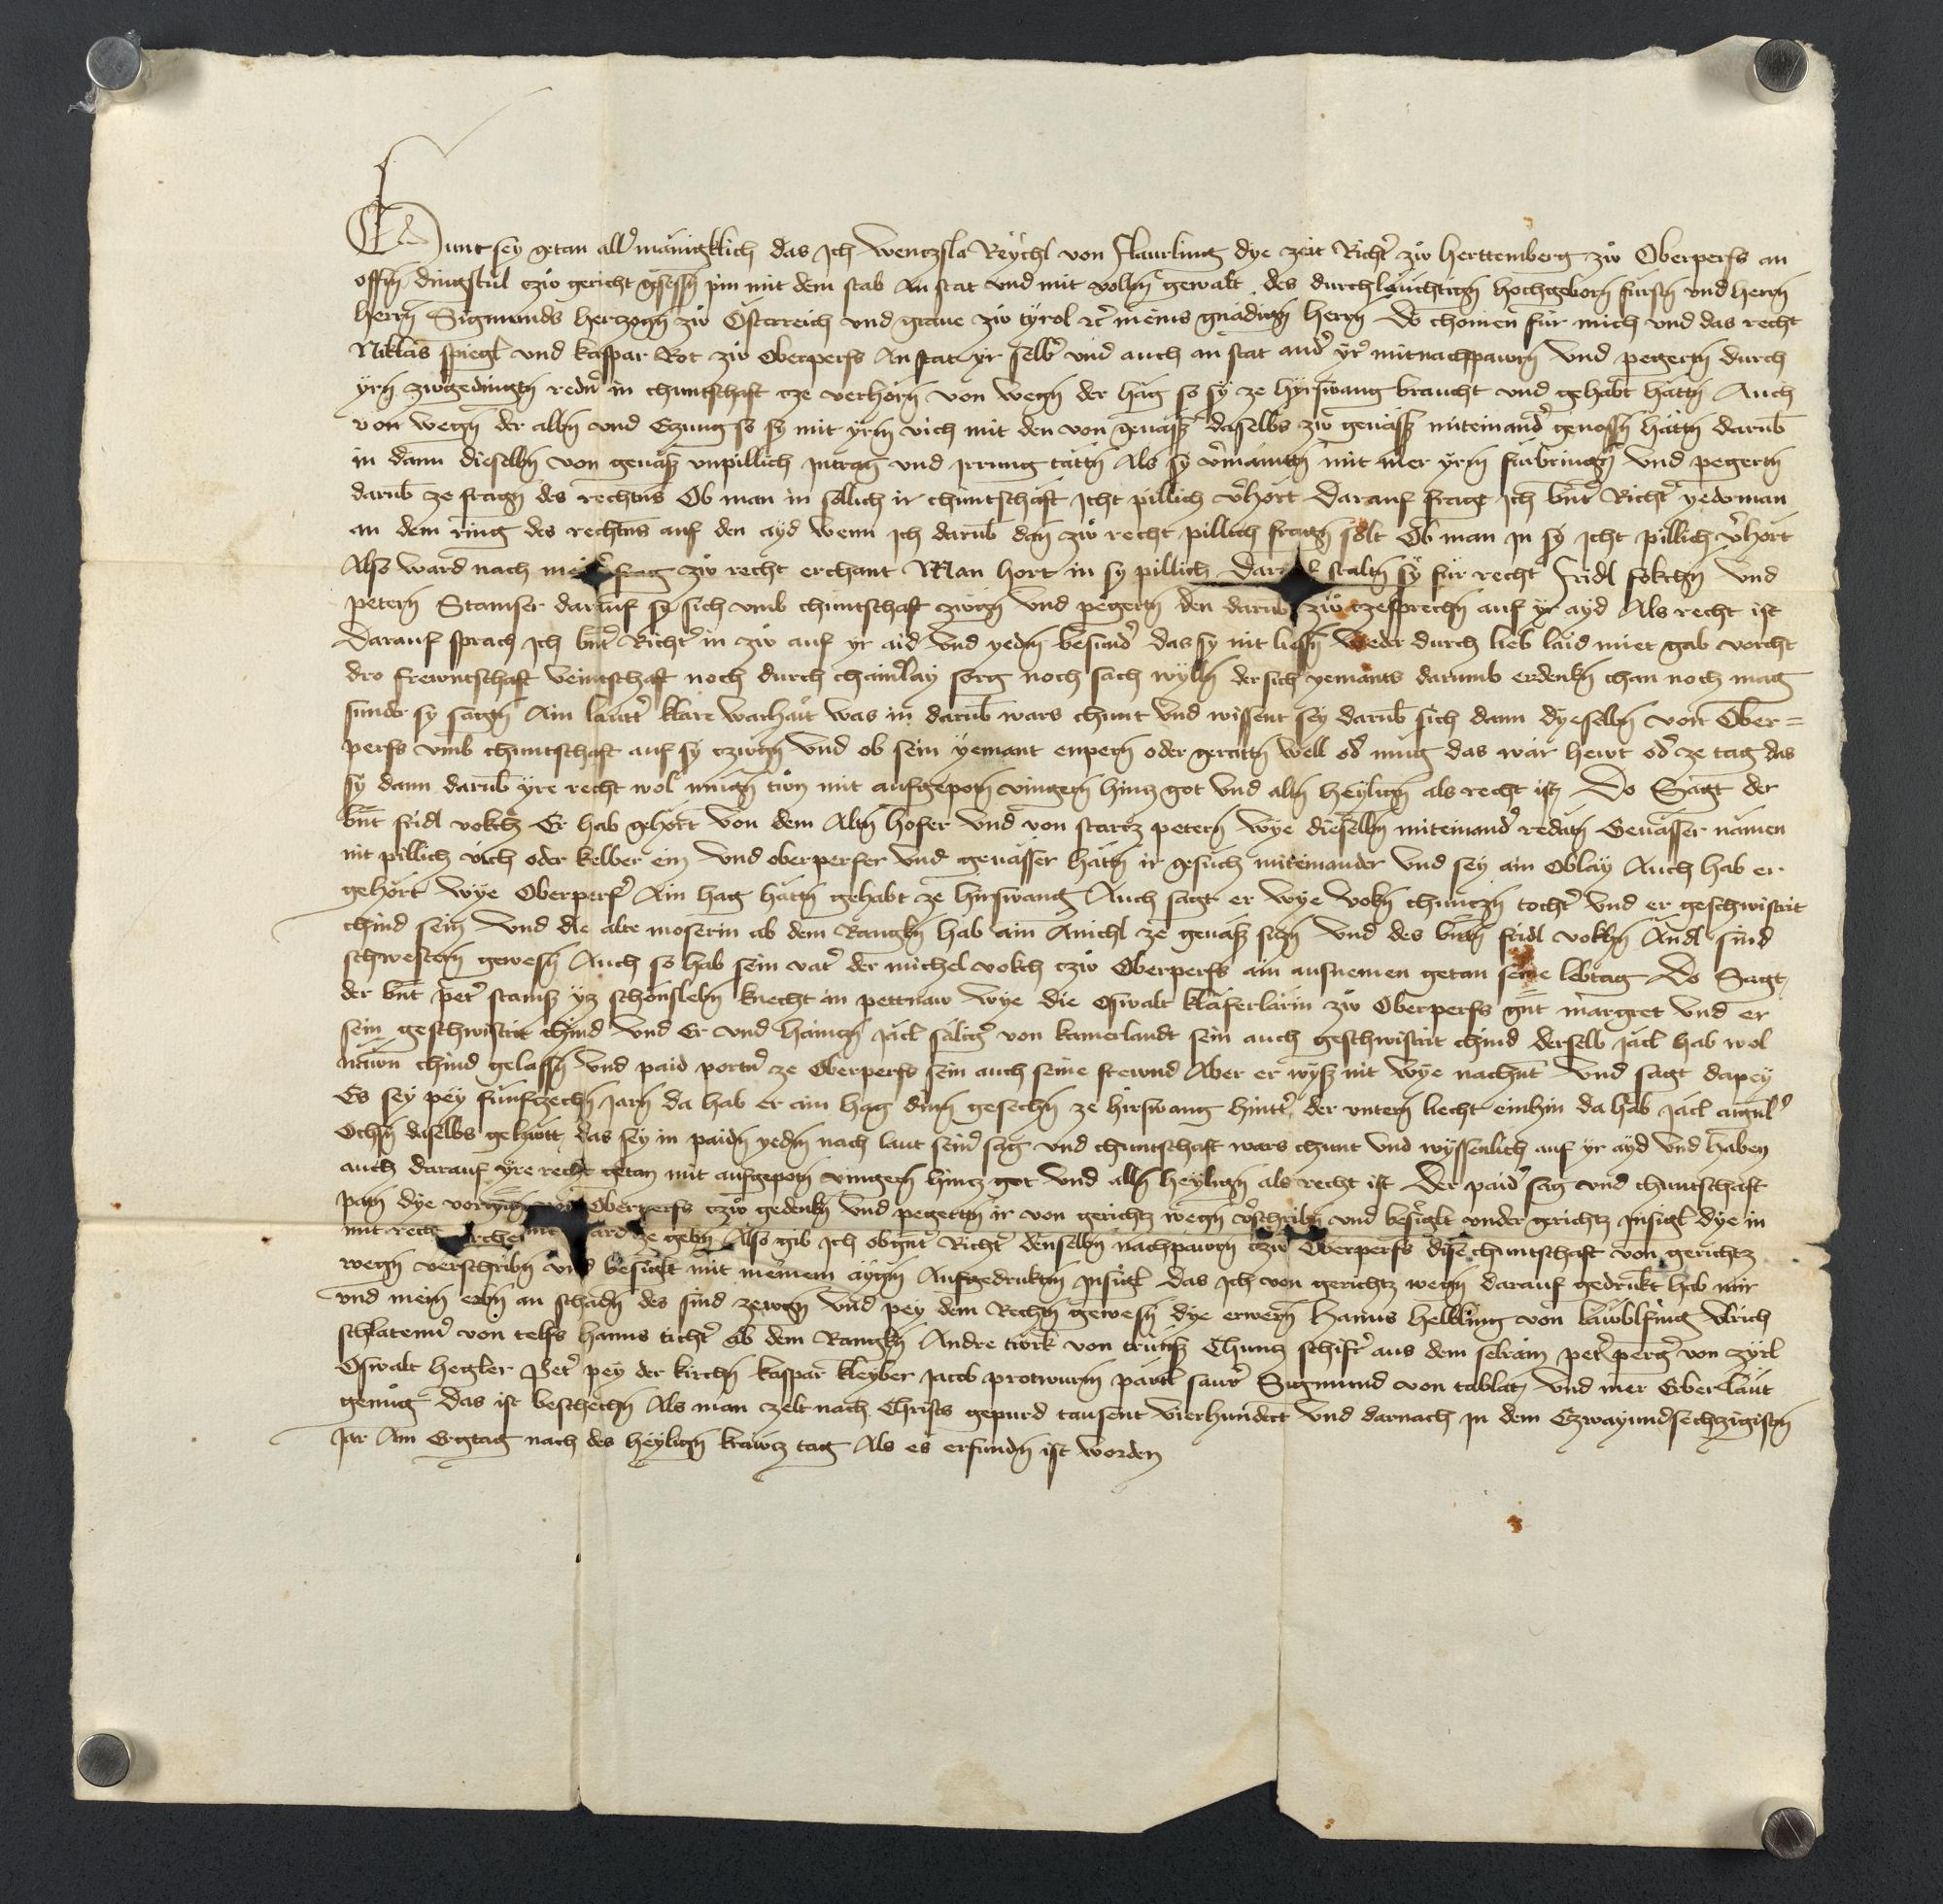 Chunt sey getan aller mänigklich das Ich Wenczsla Reychl von flaurling dye zeit Richter zů herttemberg zů Oberperfs an
offen dingstul czů gericht gesessen pin mit dem stab An stat und mit vollen gewalt des durchleuchtigen hochgeboren fürsten und heren
heren Sigmunds herczogen zů Österreich und graue zů tyrol etc meins gnädigen heren Do chomen für mich und das recht
Niklas spiegl und kaspar Rot zů Oberperfs An stat yr selber und auch an stat ander yrer mitnachpawren und pegerten durch
yren zůgedingten redner in chuntschaft cze verhören von wegen der häg so sy ze hyrswang braucht und gehabt hätten Auch
von wegen der alben und Eczung so sy mit yrem vich mit den von geuäss daselbs zů geuäss miteinander genossen hätten darumb
in dann dieselben von geuäss unpillich intrag und irrung tätten Als sy vermainten mit mer yrem fürbringen und pegerten
darumb ze fragen des rechtens Ob man in sölich ir chuntschaft Icht pillich verhört Darauf fragt Ich benanter Richter yederman
an dem ring des rechtens auf den ayd wenn Ich darumb dan zů recht pillich fragen solt Ob man In sy Icht pillich verhört
Also ward nach meiner frag zů recht erchant Man hort in sy pillich Darauf stalten sy für recht fridl fokchen Und
petern Stamser darauf sy sich umb chuntschaft zůgen und pegerten den darumb zů czesprechen auf yr ayd Als recht ist
Darauf sprach Ich benanter Richter in zů auf yr aid und yeden besunder das sy nit liessen Weder durch lieb laid miet gab vorcht
dro frewntschaft veintschaft noch durch chainerlay sorg noch sach wyllen der sich yemants darumb erdenken chan noch mag
sunder sy sagen Ain lautter klare warhait was in darumb wars chunt und wissent sey darumb sich dann dyeselben von Ober=
perfs umb chuntschaft auf sy czůgen Und ob sein yemant enpern oder geratten well oder mug das wär hewt oder ze tag das
sy dann darumb yre recht wol mugen tůn mit aufgepoten vingern hincz got und allen heyligen als recht ist Do Sagt der
benant fridl vokch Er hab gehört von dem Alten hofer und von starcz petern Wye dieselben miteinander redäten Geuässer nämen
nit pillich vich oder kelber ein und oberperfer und geuässer hätten ir gesůch miteinander und sey ain Oblay Auch hab er
gehört wye Oberperfer Ain hag hätten gehabt ze hirswang Auch sagt er wye voken chunczen tochter und er geschwistrit
chind sein Und die alte moserin ab dem Rangken hab ain Änichl ze geuäss siczen Und des benanten fridl vokhen Ändl sind
schwestern gewesen Auch so hab sein vater der michel vokch czů Oberperfs ain ausnemen getan seine lebtag Do Sagt
der benant peter stamser yecz schönslehen knecht in pettnaw wye die Oswalt kläferlärin zů Oberperfs genant margret und er
sein geschwistrit chind und Er und hainczen Jäcl säliger von kamerlandt sein auch geschwistrit chind derselb Jäcl hab wol
newn chind gelassen Und paid portner ze Oberperfs sein auch seine frewnd Aber er wyss nit wye nachent Und sagt dapey
Es sey pey fünfczechen Jaren da hab er ain hag dinn gesechen ze hirswang hintter der untern liecht einhin da hab Jäcl aigner
Ochsen daselbs gehütt das sey in paiden yeden nach laut seiner sag und chuntschaft wars chunt und wyssenlich auf yr ayd und haben
auch darauf yre recht getan mit aufgepoten vingern hincz got und allen heyligen als recht ist Der paider sag und chuntschaft
paten dye vorigen von Oberperfs czů gedenken und pegerten ir von gerichtz wegen verschriben und besiglt under gerichtz Insigl dye in
mit recht erchennt ward ze geben Also gib Ich obgenanter Richter denselben nachpawren czů Oberperfs dise chuntschaft von gerichtz
wegen verschriben und besiglt mit meinem aygen Aufgedruktem Insigl das Ich von gerichtz wegen darauf gedrukt hab mir
und mein erben an schaden des sind zewgen und pey dem Rechten gewesen dye erwern hanns helbling von läwblfing Ulrich
schlatenner von telfs hanns tichter ab dem Rangken Andre türk von trüens Chuncz schifer aus dem selrain peter perger von zyrl
Oswalt hegler Peter pey der kirchen kaspar kleyber Jacob protwurm pärtl saurer Sigmund von tablat und mer Erber läut
genůg Das ist beschechen Als man zelt nach Christs gepurd tausent vierhundert Und darnach in dem Czwayundsechzigisten
Jar Am Ergtag nach des heyligen krawcz tag Als es erfunden ist worden